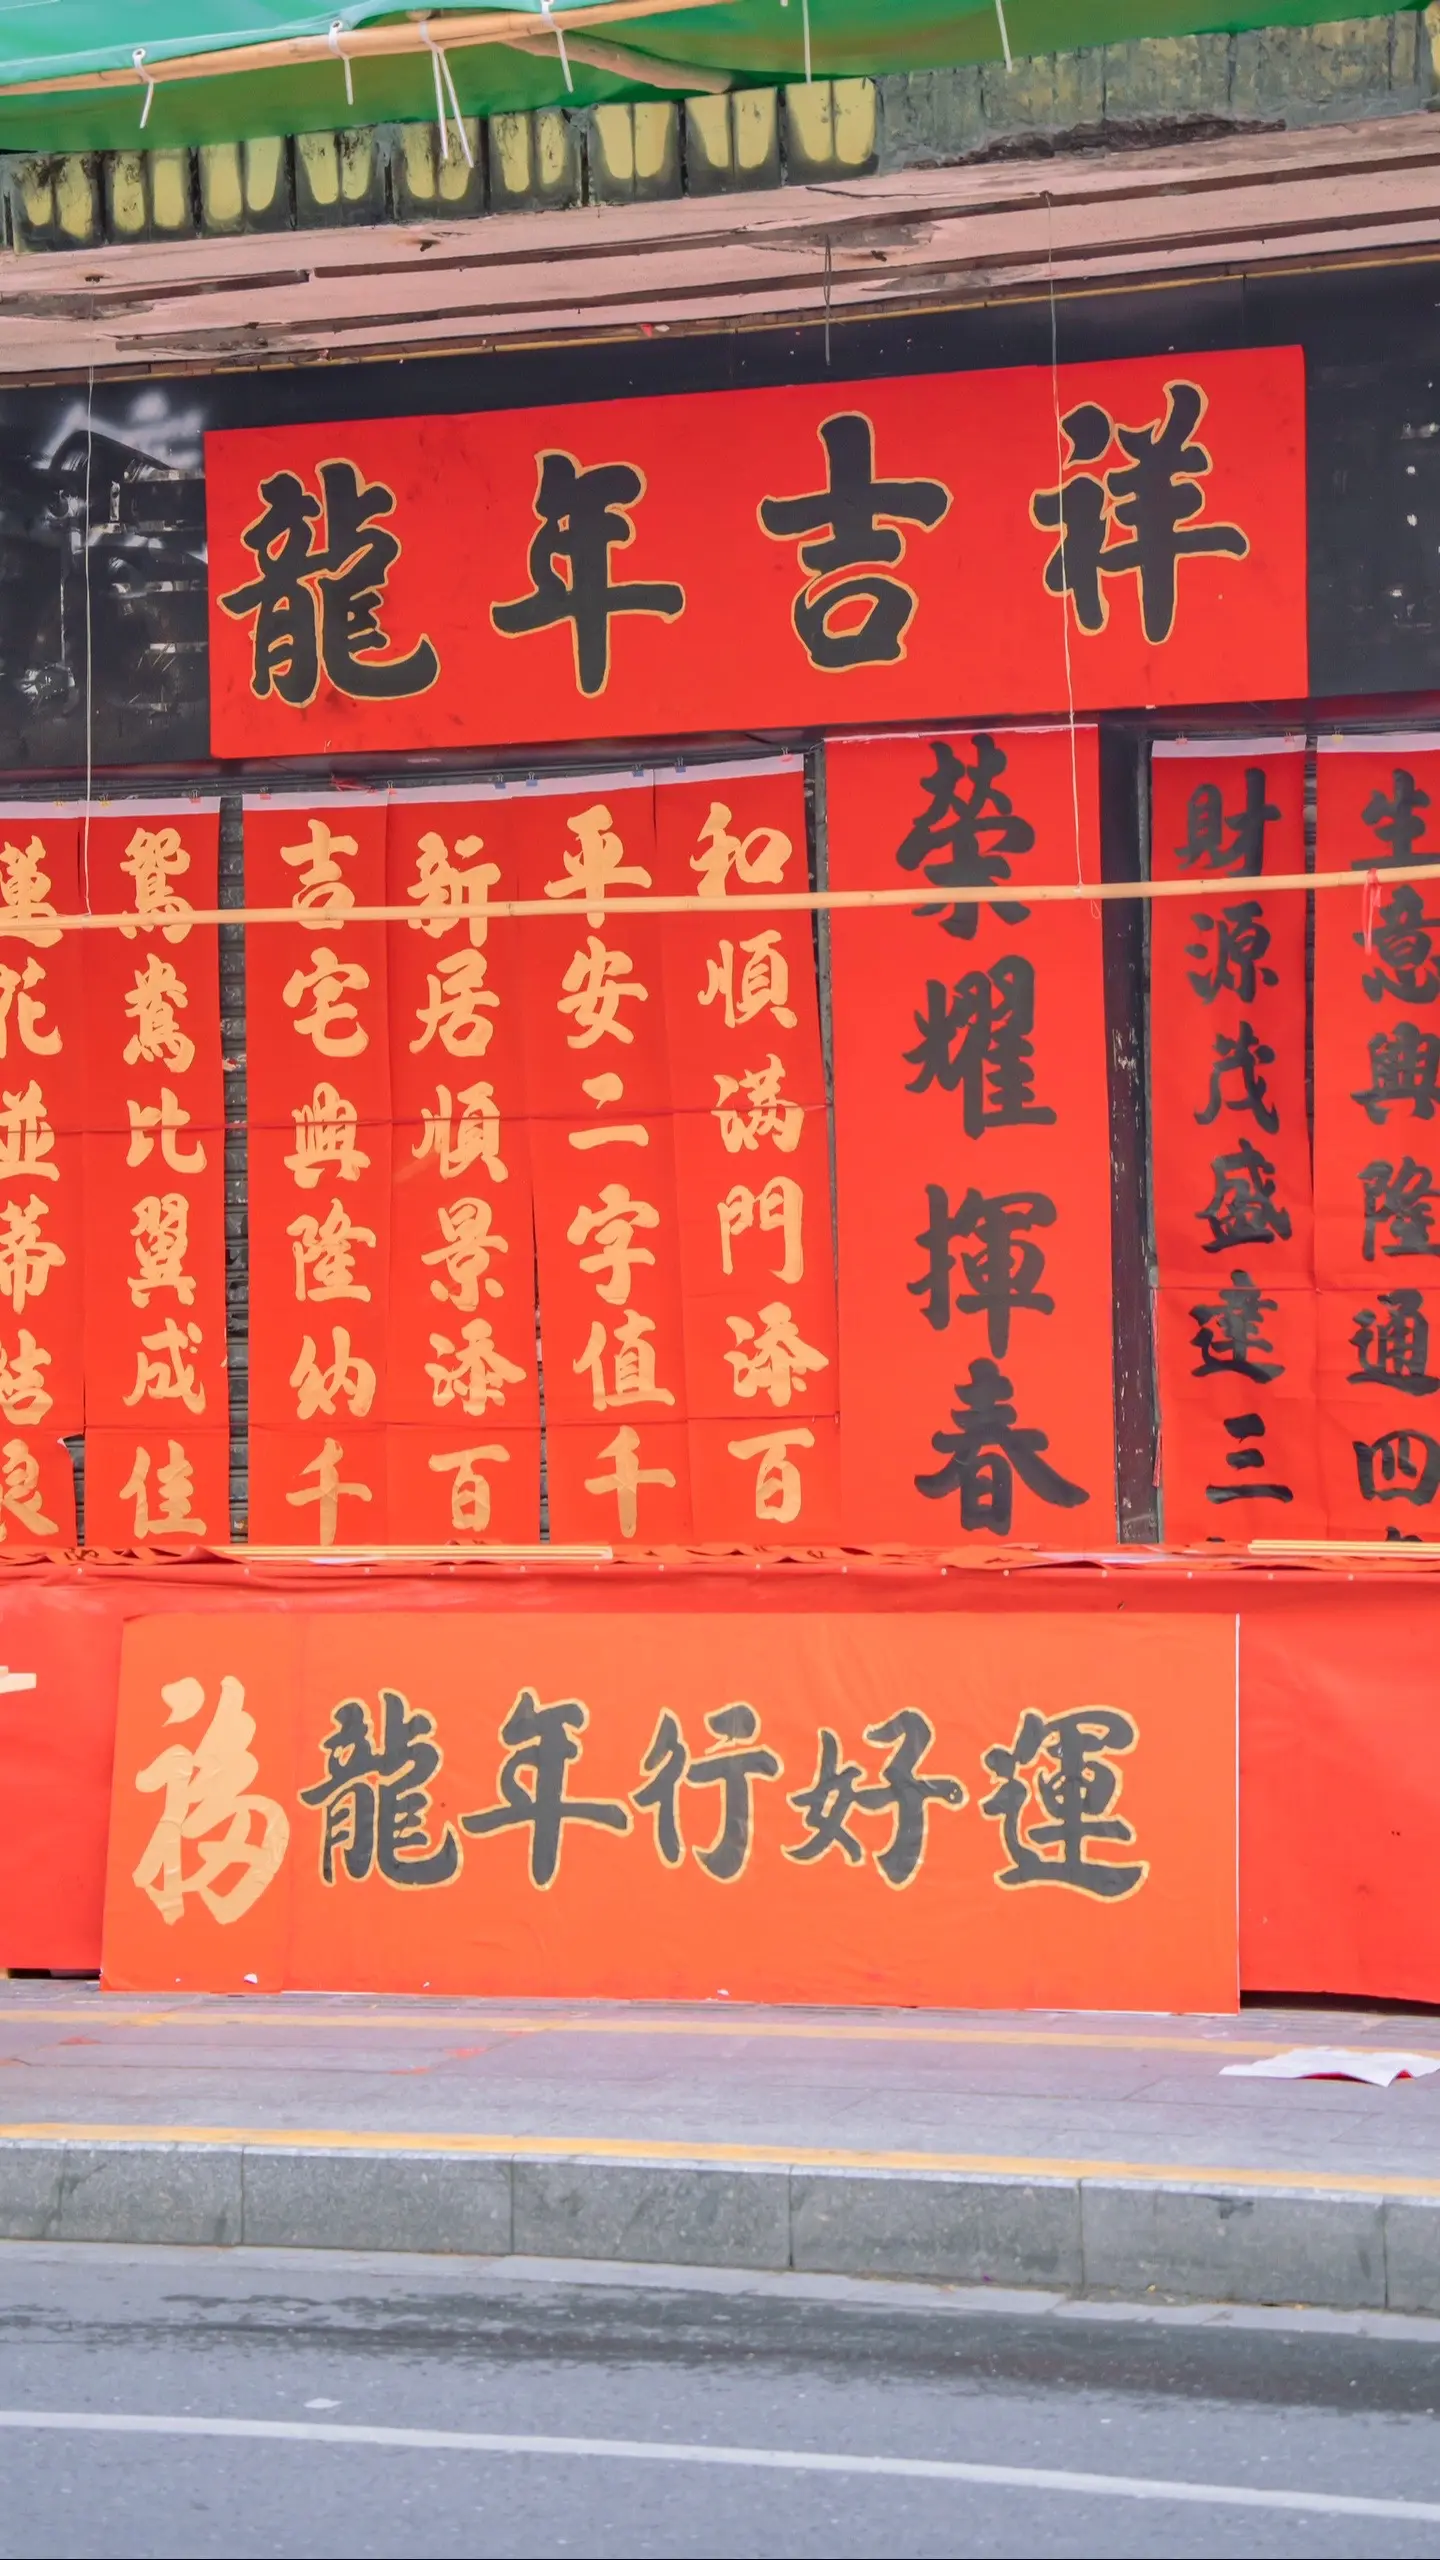 龍年吉祥
生意興隆通四
財源茂盛達三
榮耀揮春
和順滿門添百
平安二字值千
新居順景添百
吉宅興隆納千
鴛鴦比翼成佳
蓮花並蒂結良
福
龍年行好運